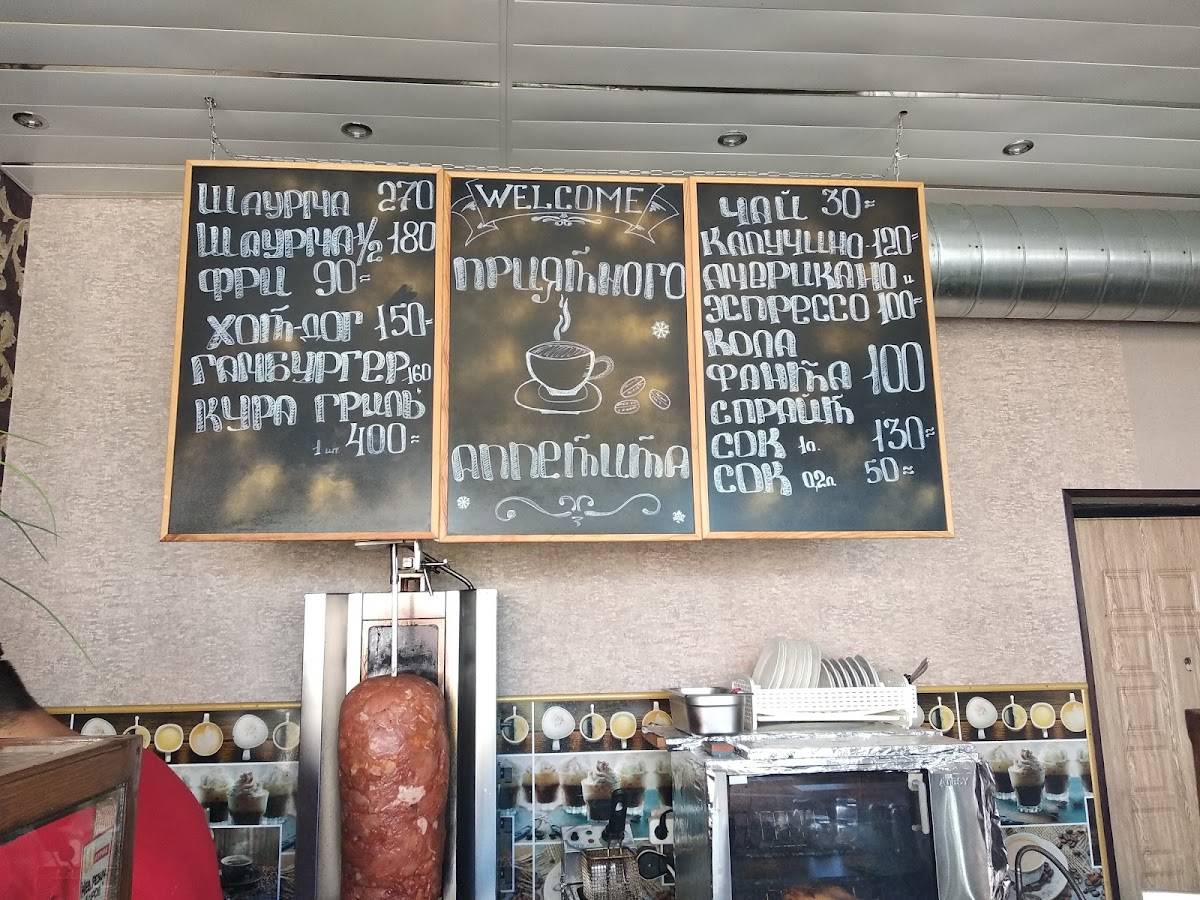 ШАУРМА 270
ШАУРМА 1/2 180
ФРИ 90=
ХОТ-ДОГ 150-
ГАМБУРГЕР 160
КУРА ГРИЛЬ
1 шт. 400=
WELCOME
ПРИЯТНОГО
АППЕТИТА
ЧАЙ 30=
КАПУЧИНО-120=
АМЕРИКАНО и
ЭСПРЕССО 100=
КОЛА
ФАНТА 100
СПРАЙТ
СОК 1л. 130=
СОК 0,2л 50=